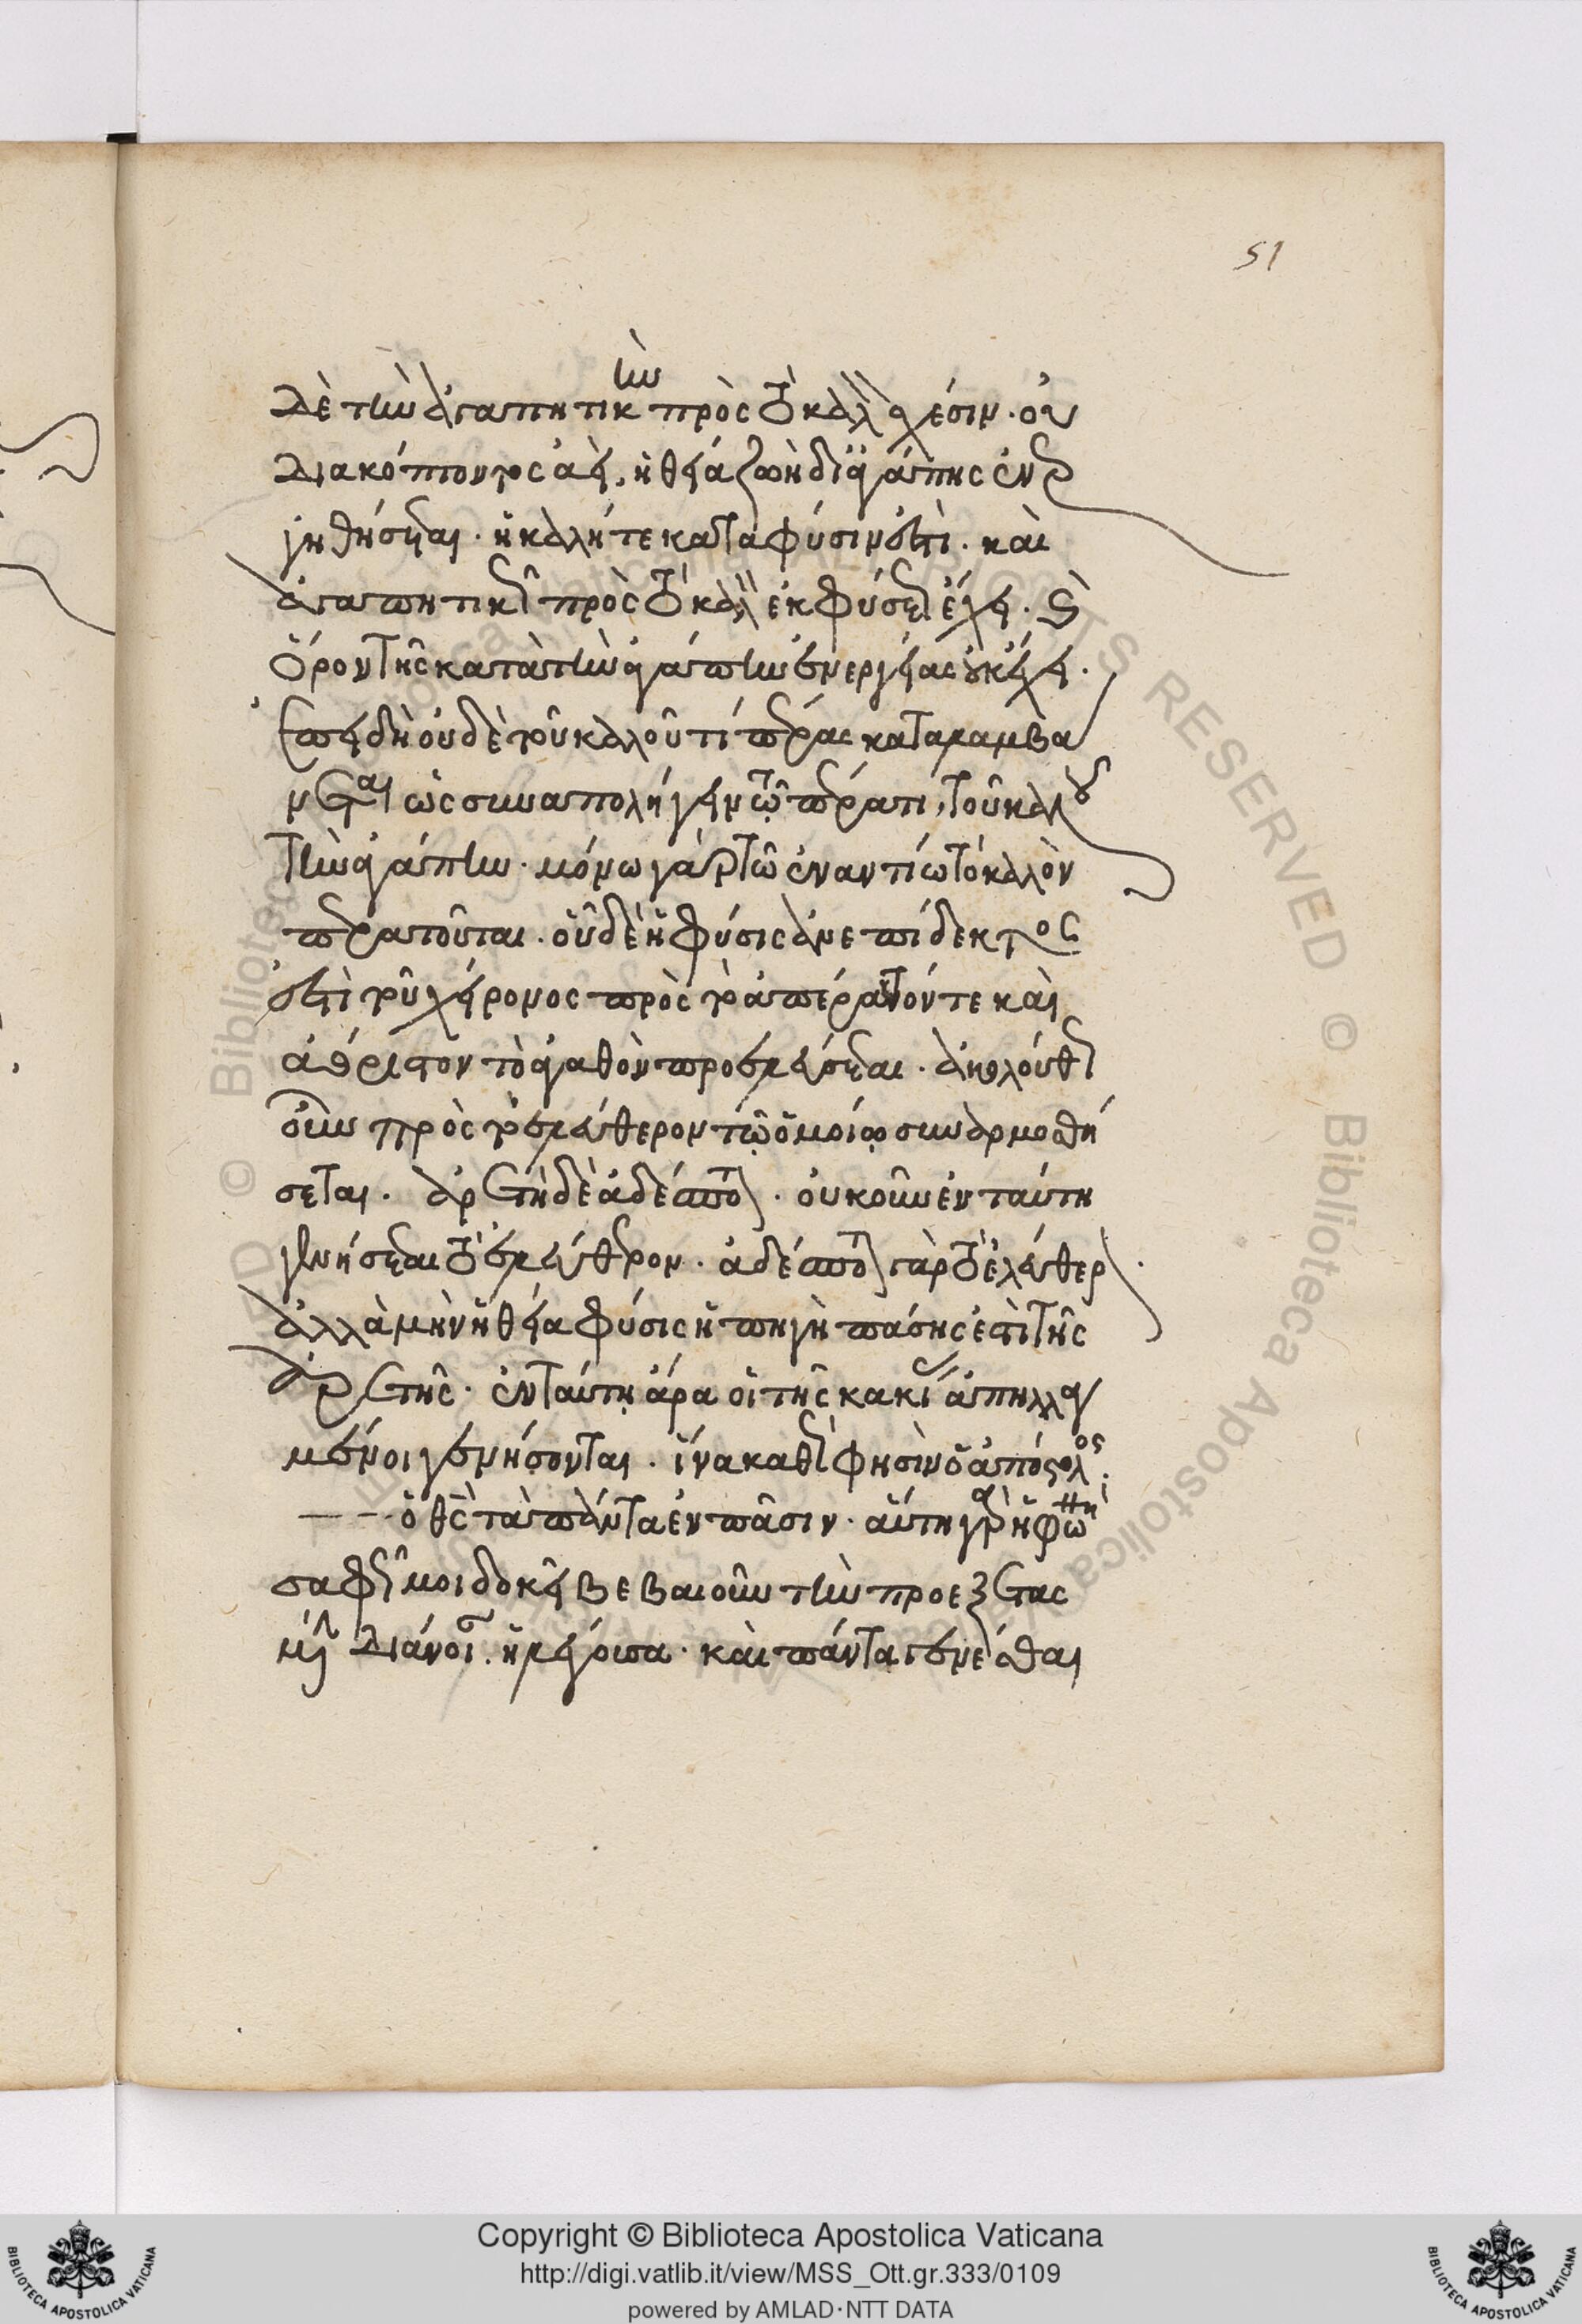 51
δὲ τὴν ἀγαπητικὴν πρὸς τὸ καλὸν σχέσιν. οὐ
διακόπτοντος ἀεὶ, ἡ θεία ζωὴ δι' ἀγάπης ἐνερ
γηθήσεται. ἣ καλή τε κατὰ φύσιν ἐστὶ. καὶ
ἀγαπητικῶς πρὸς τὸ καλὸν ἐκ φύσεως ἔχει. καὶ
ὅρον τῆς κατὰ τὴν ἀγάπην ἐνεργείας οὐκ ἔχει.
ἐπειδὴ οὐδὲ τοῦ καλοῦ τί πέρας καταλαμβά
νεται ὡς συναπολήγειν τῷ πέρατι, τοῦ καλοῦ
τὴν ἀγάπην. μόνω γὰρ τῶ ἐναντίω τὸ καλὸν
περατοῦται. οὗ δὲ ἡ φύσις ἀνεπίδεκτος
ἐστὶ τοῦ χείρονος πρὸς τὸ ἀπέραντόν τε καὶ
ἀόριστον τὸ ἀγαθὸν προελεύσεται.
οὖν πρὸς τὸ ἐλεύθερον τῷ ὁμοίῳ συναρμοσθή
σεται. ἀρετὴ δὲ ἀδέσποτον. οὐκοῦν ἐν ταύτη
γενήσεται τὸ ἐλεύθερον. ἀδέσποτον γὰρ τὸ ἐλεύθερον.
ἀλλὰ μὴν ἡ θεία φύσις ἡ πηγὴ πάσης ἐστὶ τῆς
ἀρετῆς. ἐν ταύτῃ ἄρα οἱ τῆς κακίας ἀπηλλαγ
μένοι γενήσονται. ἵνα καθώς φησὶν ὁ ἀπόστολος.
ὁ θς τὰ πάντα ἐν πᾶσιν. αὕτη γὰρ ἡ φωνὴ
σαφῶς μοι δοκεῖ βεβαιοῦν τὴν προεξετας
μένην διάνοιαν. ἡ λέγουσα. καὶ πάντα γενέσθαι
Copyright © Biblioteca Apostolica Vaticana
http://digi.vatlib.it/view/MSS_Ott.gr.333/0109
powered by AMLAD·NTT DATA
BIBLIOTECA APOSTOLICA VATICANA
BIBLIOTECA APOSTOLICA VATICANA